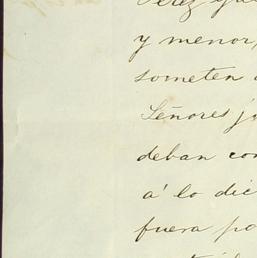 Perez q
y menor,
someten a
Señores j
deban con
a' lo dic
fuera po